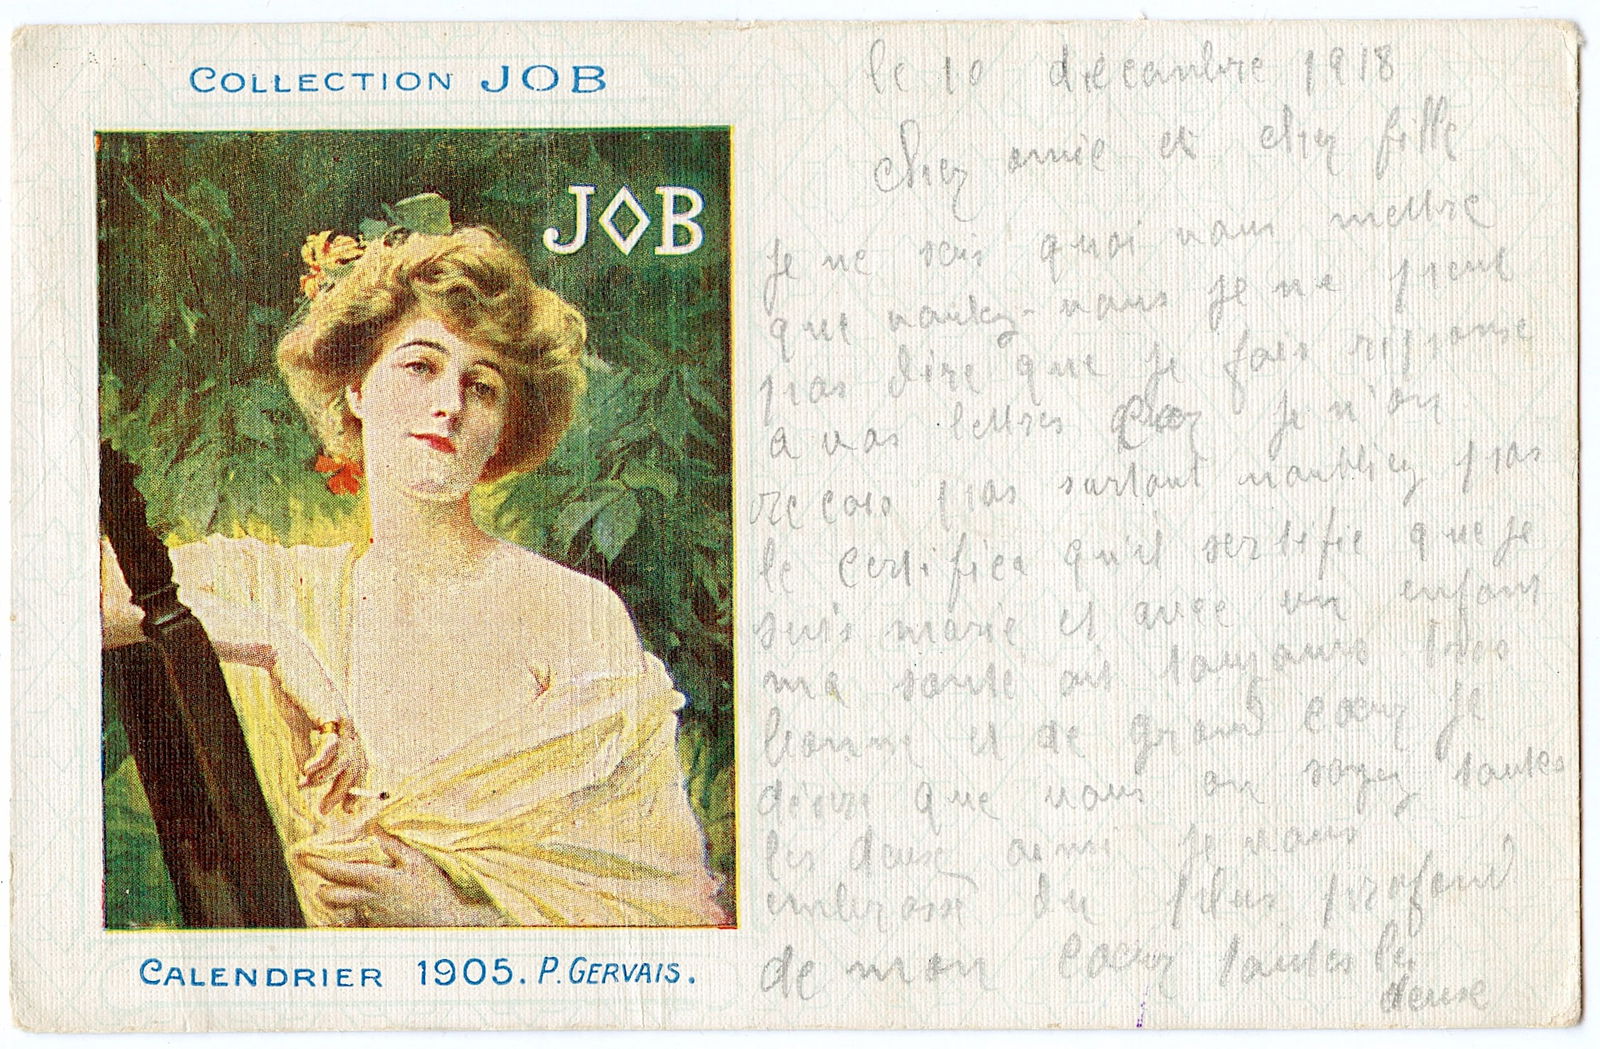 COLLECTION JOB
JOB
CALENDRIER 1905. P. GERVAIS.
le 10 décembre 1918
cher amie et cher fille
je ne sais quoi vous mettre
que voulez-vous je ne peut
pas dire que je fais réponse
a vos lettres car je n'on
recois pas surtout noubliez pas
le certifica qu'il sertifie que je
suis marié et avec un enfant
ma santé ait toujours tres
bonne et de grand coeur je
désire que vous on soyez toutes
les deuse ainsi je vous
embrasse du plus profond
de mon coeur toutes les
deuse